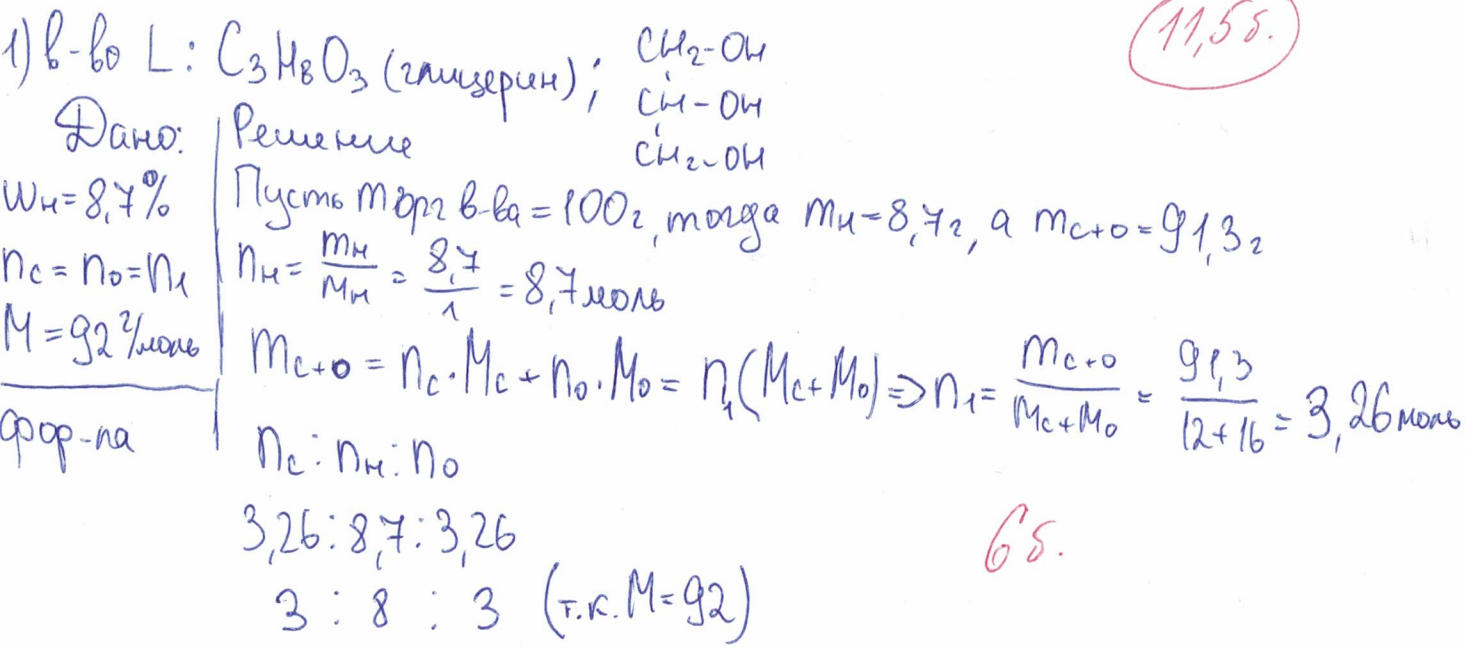 1) в-во L: C₃H₈O₃ (глицерин); CH₂-OH
CH-OH
CH₂-OH
11,5 б.
Дано:
wн = 8,7%
nс = nо = n₁
M = 92 г/моль
фор-ла
Решение
Пусть m орг в-ва = 100г, тогда mн = 8,7г, а mс+о = 91,3г
nн = mн/Mн = 8,7/1 = 8,7 моль
mс+о = nс·Mс + nо·Mо = n₁(Mс+Mо) => n₁ = mс+о/Mс+Mо = 91,3/12+16 = 3,26 моль
nс : nн : nо
3,26 : 8,7 : 3,26
3 : 8 : 3 (т.к. M=92)
6 б.